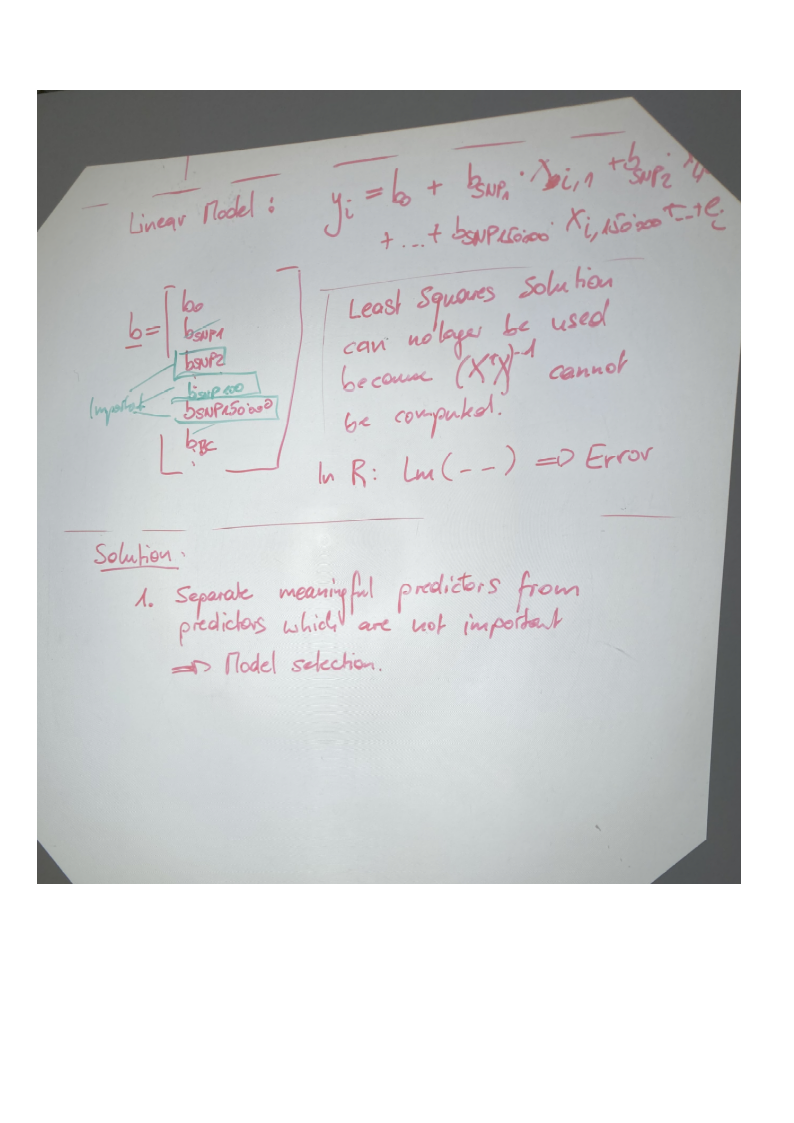 Linear Model: yi = b0 + bSNP1 · xi,1 + bSNP2 ·
+ ... + bSNP150'000 · xi,150'000 + -- + ei
b = [ b0
bSNP1
bSNP2
Important
bSNP100
bSNP150'000
bBC
Least Squares Solution
can no loger be used
because (XᵀX)⁻¹ cannot
be computed.
In R: lm(--) => Error
Solution:
1. Separate meaningful predictors from
predictors which are not important
=> Model selection.